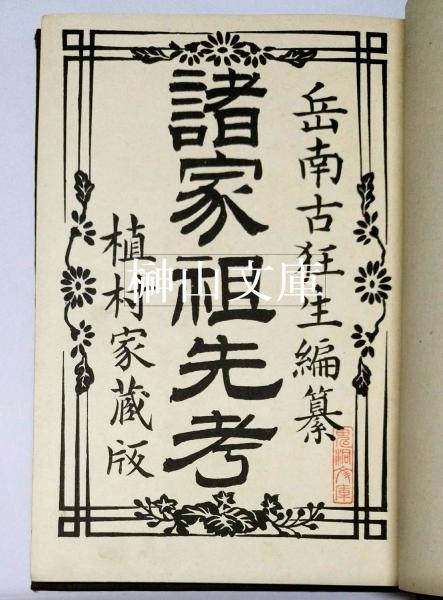 岳南古狂生編纂
諸家祖先考
植村家蔵版
榊山文庫
鬼洞文庫